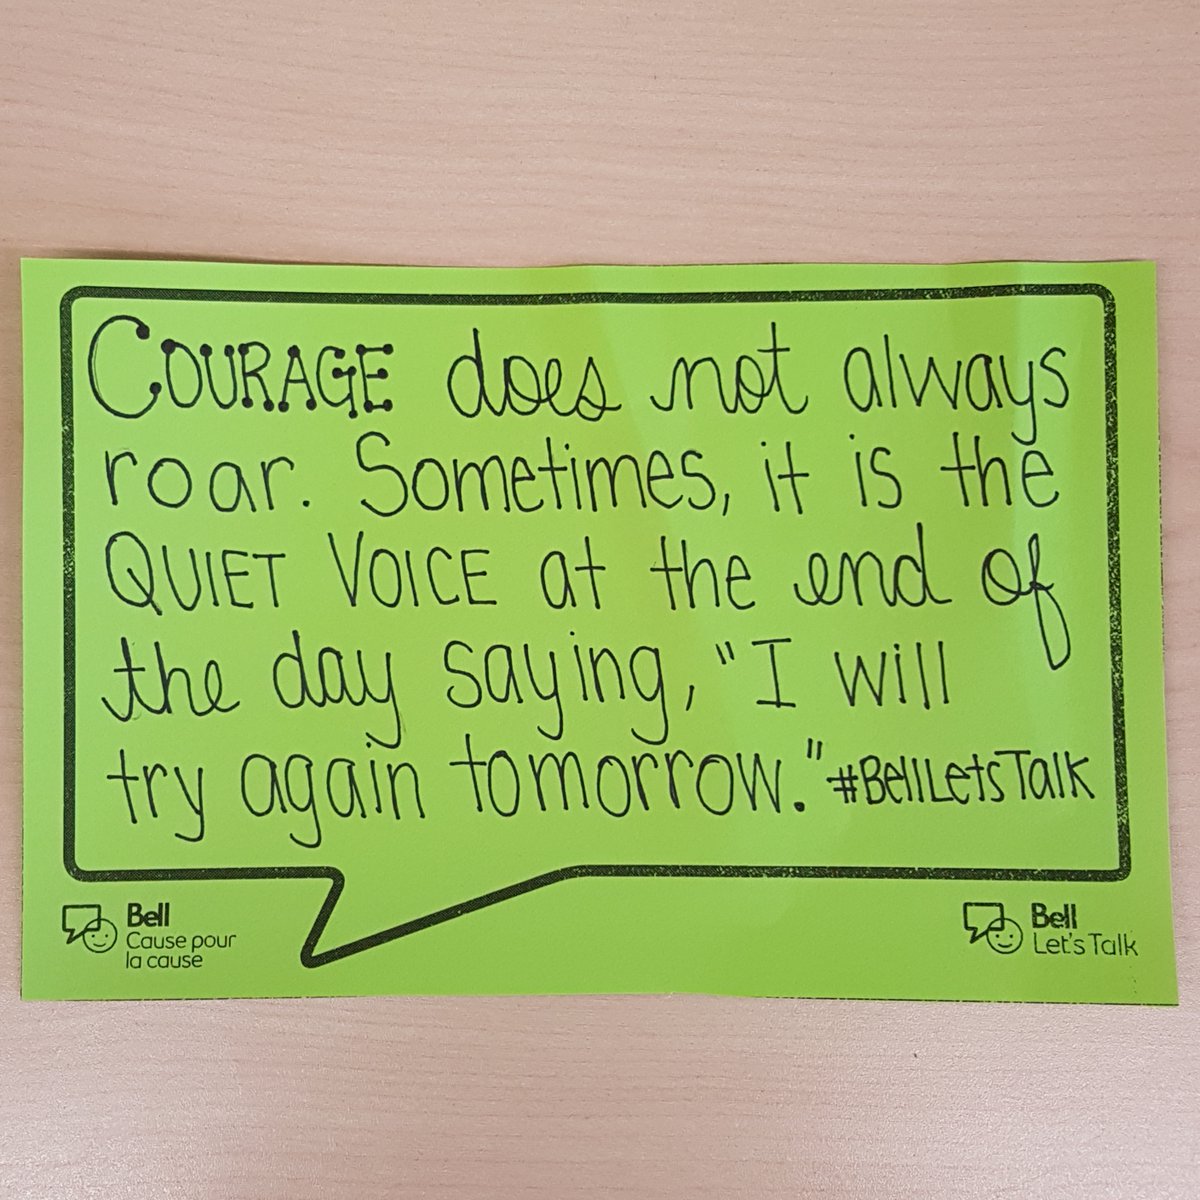 COURAGE does not always
roar. Sometimes, it is the
QUIET VOICE at the end of
the day saying, "I will
try again tomorrow." #BellLetsTalk
Bell
Cause pour
la cause
Bell
Let's Talk